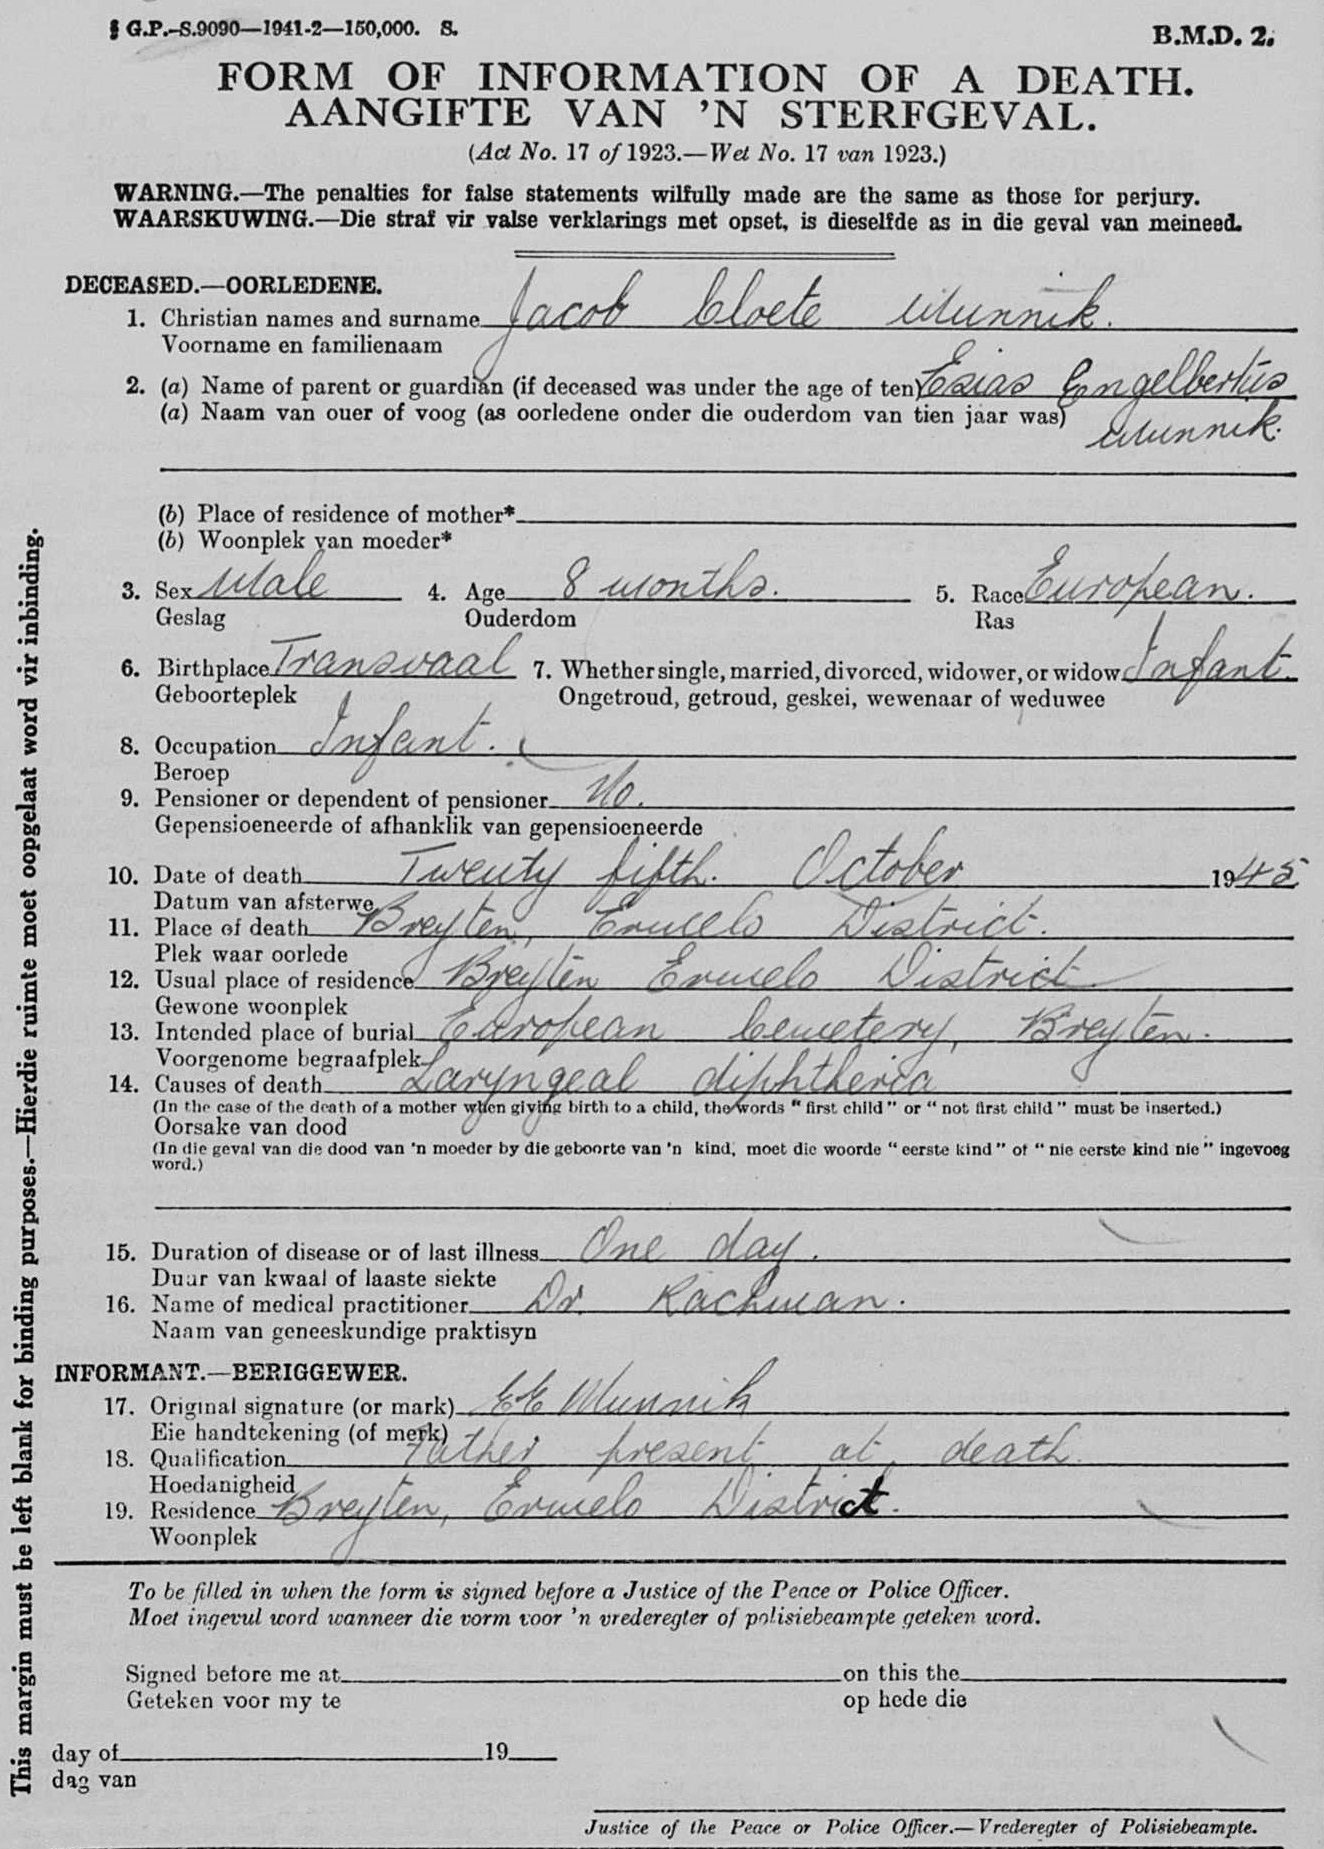 § G.P.-S.9090—1941-2—150,000. S.
B.M.D. 2.
FORM OF INFORMATION OF A DEATH.
AANGIFTE VAN 'N STERFGEVAL.
(Act No. 17 of 1923.—Wet No. 17 van 1923.)
WARNING.—The penalties for false statements wilfully made are the same as those for perjury.
WAARSKUWING.—Die straf vir valse verklarings met opset, is dieselfde as in die geval van meineed.
DECEASED.—OORLEDENE.
1. Christian names and surname Jacob Cloete Munnik.
Voorname en familienaam
2. (a) Name of parent or guardian (if deceased was under the age of ten) Esias Engelbertus
(a) Naam van ouer of voog (as oorledene onder die ouderdom van tien jaar was) Munnik.
(b) Place of residence of mother*
(b) Woonplek van moeder*
3. Sex Male 4. Age 8 months. 5. Race European.
Geslag Ouderdom Ras
6. Birthplace Transvaal 7. Whether single, married, divorced, widower, or widow Infant.
Geboorteplek Ongetroud, getroud, geskei, wewenaar of weduwee
8. Occupation Infant.
Beroep
9. Pensioner or dependent of pensioner No.
Gepensioeneerde of afhanklik van gepensioeneerde
10. Date of death Twenty fifth. October 1945
Datum van afsterwe
11. Place of death Breyten, Ermelo District.
Plek waar oorlede
12. Usual place of residence Breyten Ermelo District
Gewone woonplek
13. Intended place of burial European Cemetery, Breyten.
Voorgenome begraafplek
14. Causes of death Laryngeal diphtheria
(In the case of the death of a mother when giving birth to a child, the words " first child " or " not first child " must be inserted.)
Oorsake van dood
(In die geval van die dood van 'n moeder by die geboorte van 'n kind, moet die woorde " eerste kind " of " nie eerste kind nie " ingevoeg
word.)
15. Duration of disease or of last illness One day.
Duur van kwaal of laaste siekte
16. Name of medical practitioner Dr. Rachman.
Naam van geneeskundige praktisyn
INFORMANT.—BERIGGEWER.
17. Original signature (or mark) EE Munnik
Eie handtekening (of merk)
18. Qualification Father present at death.
Hoedanigheid
19. Residence Breyten, Ermelo District.
Woonplek
To be filled in when the form is signed before a Justice of the Peace or Police Officer.
Moet ingevul word wanneer die vorm voor 'n vrederegter of polisiebeampte geteken word.
Signed before me at on this the
Geteken voor my te op hede die
day of 19
dag van
Justice of the Peace or Police Officer.—Vrederegter of Polisiebeampte.
This margin must be left blank for binding purposes.—Hierdie ruimte moet oopgelaat word vir inbinding.